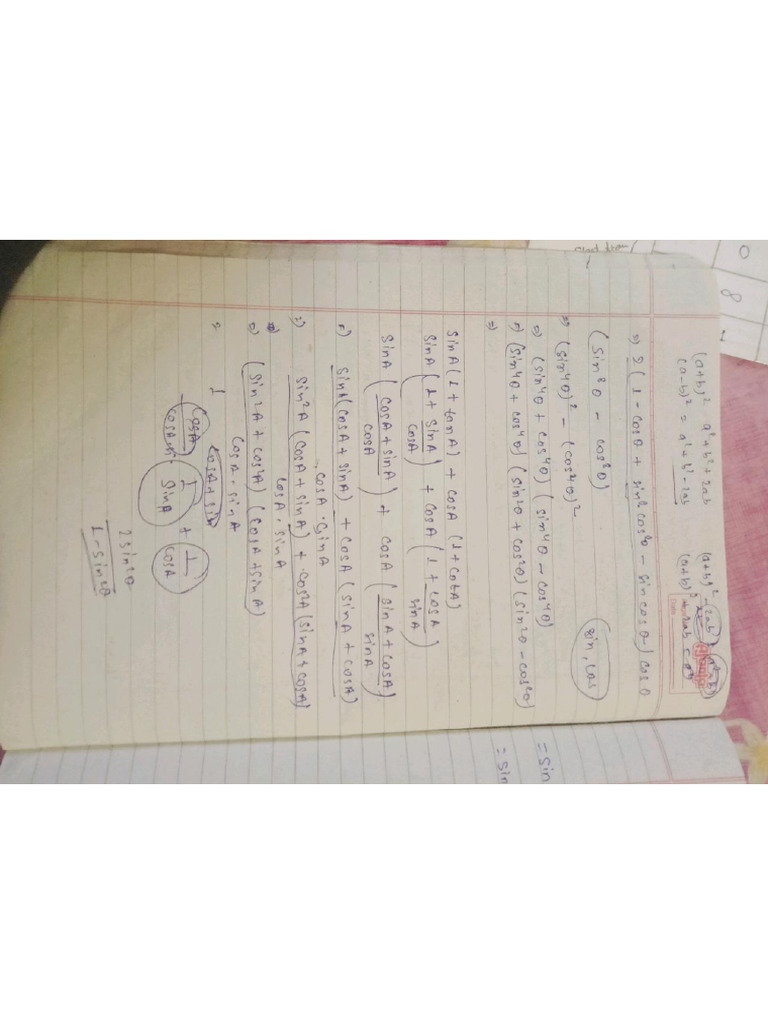 (a+b)² a²+b²+2ab
(a-b)² = a²+b²-2ab
(a+b)² - 2ab
⇒ 2(1 - cosθ + sin²cos²θ - sin cosθ) cosθ
(sin⁸θ - cos⁸θ)
sin, cos
⇒ (sin⁴θ)² - (cos⁴θ)²
⇒ (sin⁴θ + cos⁴θ) (sin⁴θ - cos⁴θ)
⇒ (sin⁴θ + cos⁴θ) (sin²θ + cos²θ) (sin²θ - cos²θ)
⇒
SinA (1 + tanA) + cosA (1 + cotA)
SinA (1 + SinA/cosA) + cosA (1 + cosA/sinA)
SinA (cosA + sinA/cosA) + cosA (sinA + cosA/sinA)
⇒ SinA(cosA + sinA) + cosA (sinA + cosA)
cosA · SinA
⇒ Sin²A (cosA + sinA) + cos²A (sinA + cosA)
cosA · sinA
⇒ (sin²A + cos²A) (cosA + sinA)
cosA · sinA
1/SinA + 1/cosA
2sin²θ
1 - sin²θ
0
8
1
= Sin
= Sin